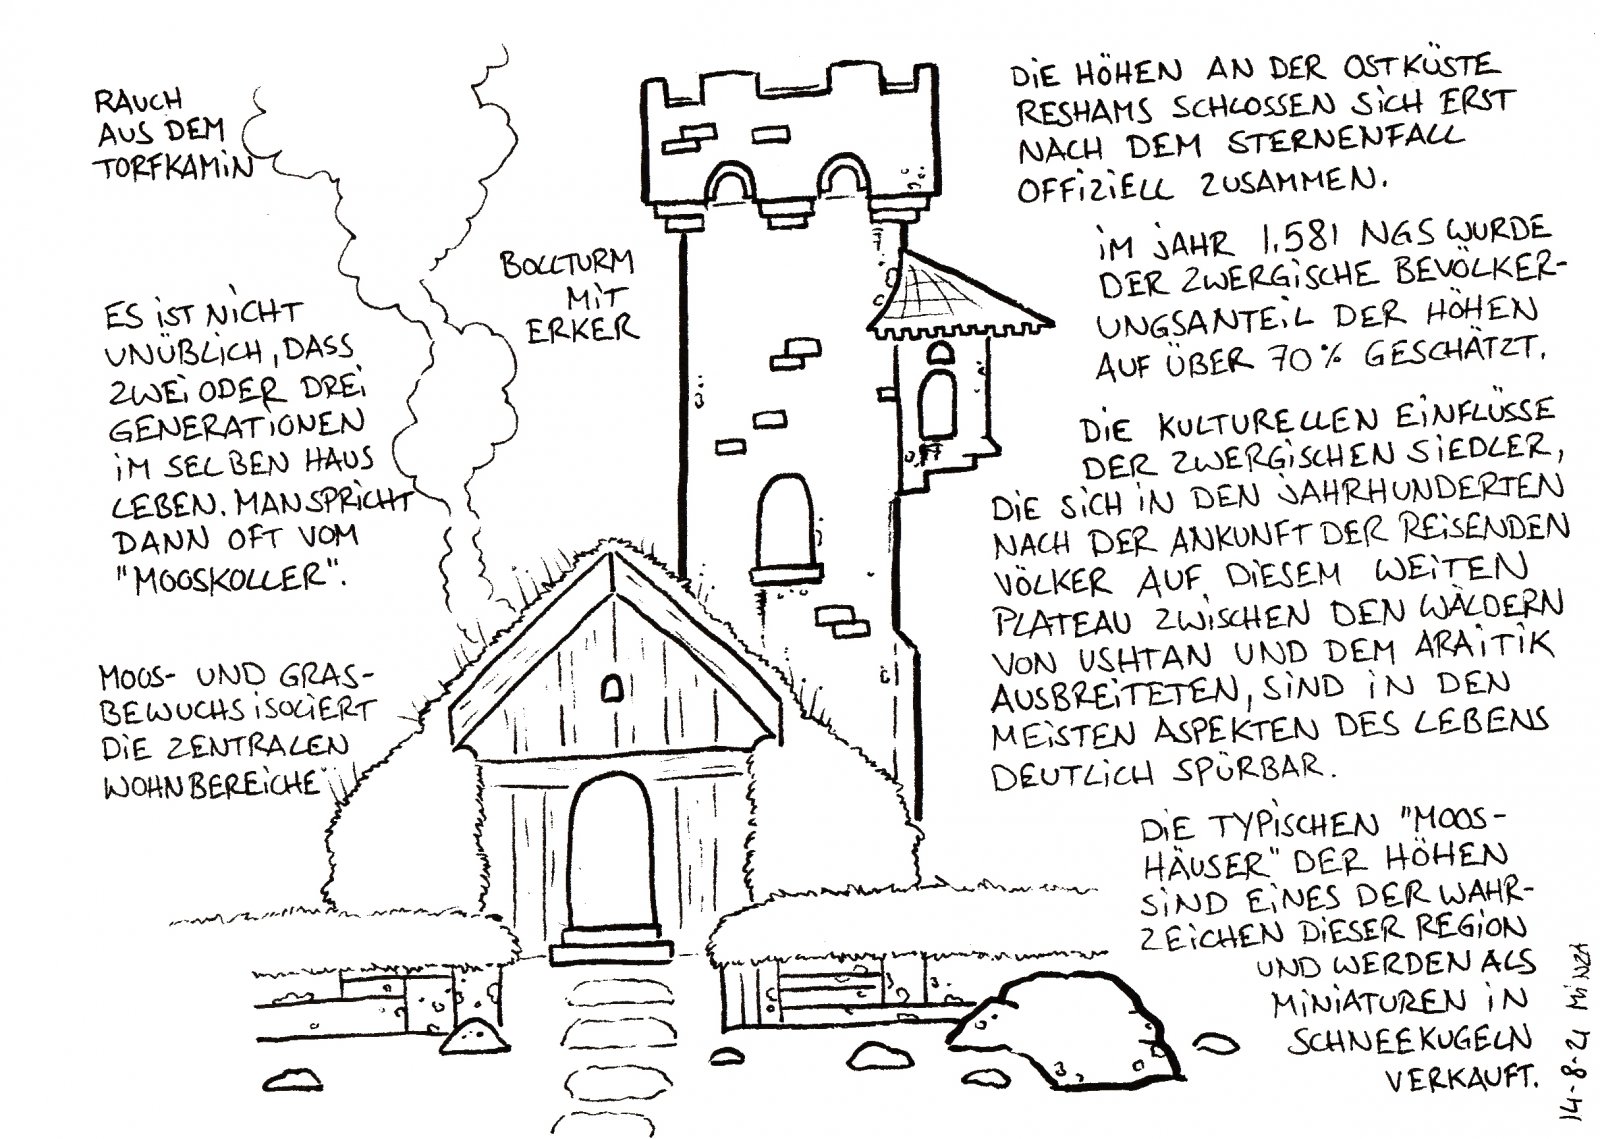 RAUCH
AUS DEM
TORFKAMIN
ES IST NICHT
UNÜBLICH, DASS
ZWEI ODER DREI
GENERATIONEN
IM SELBEN HAUS
LEBEN. MAN SPRICHT
DANN OFT VOM
"MOOSKOLLER".
MOOS- UND GRAS-
BEWUCHS ISOLIERT
DIE ZENTRALEN
WOHNBEREICHE
BOLLTURM
MIT
ERKER
DIE HÖHEN AN DER OSTKÜSTE
RESHAMS SCHLOSSEN SICH ERST
NACH DEM STERNENFALL
OFFIZIELL ZUSAMMEN.
IM JAHR 1.581 NGS WURDE
DER ZWERGISCHE BEVÖLKER-
UNGSANTEIL DER HÖHEN
AUF ÜBER 70% GESCHÄTZT.
DIE KULTURELLEN EINFLÜSSE
DER ZWERGISCHEN SIEDLER,
DIE SICH IN DEN JAHRHUNDERTEN
NACH DER ANKUNFT DER REISENDEN
VÖLKER AUF DIESEM WEITEN
PLATEAU ZWISCHEN DEN WÄLDERN
VON USHTAN UND DEM ARAITIK
AUSBREITETEN, SIND IN DEN
MEISTEN ASPEKTEN DES LEBENS
DEUTLICH SPÜRBAR.
DIE TYPISCHEN "MOOS-
HÄUSER" DER HÖHEN
SIND EINES DER WAHR-
ZEICHEN DIESER REGION
UND WERDEN ALS
MINIATUREN IN
SCHNEEKUGELN
VERKAUFT.
14-8-21 MINZA